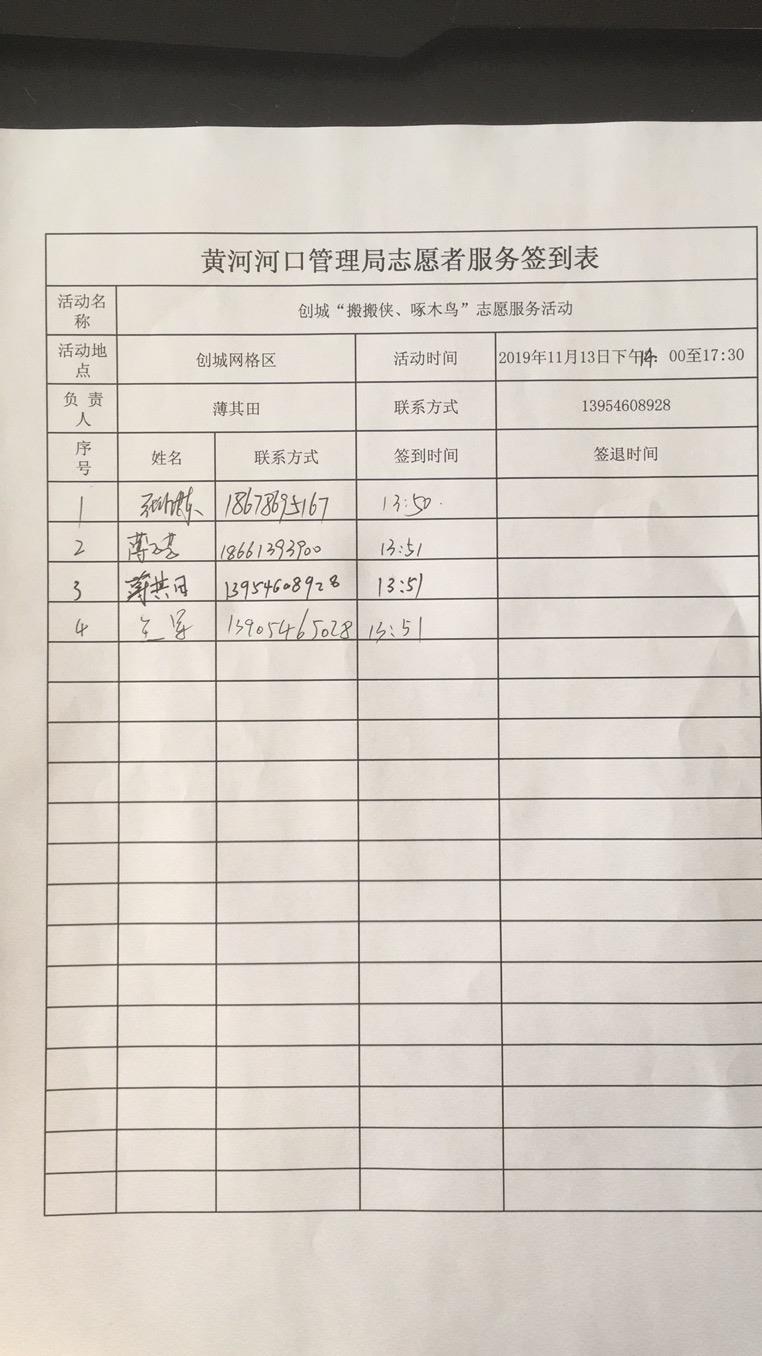 黄河河口管理局志愿者服务签到表
活动名
称
创城“搬搬侠、啄木鸟”志愿服务活动
活动地
点
创城网格区
活动时间
2019年11月13日下午14: 00至17:30
负 责
人
薄其田
联系方式
13954608928
序
号
姓名
联系方式
签到时间
签退时间
1 18678695167 13:50
2 18661393900 13:51
3 薄其田 13954608928 13:51
4 13905465028 13:51